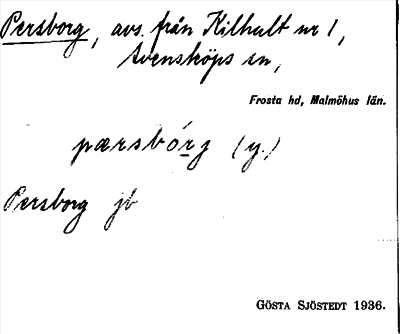 Persborg, avs. från Kilhult nr 1,
Svensköps sn,
Frosta hd, Malmöhus län.
pærsbórg (y.)
Persborg jb
GÖSTA SJÖSTEDT 1936.